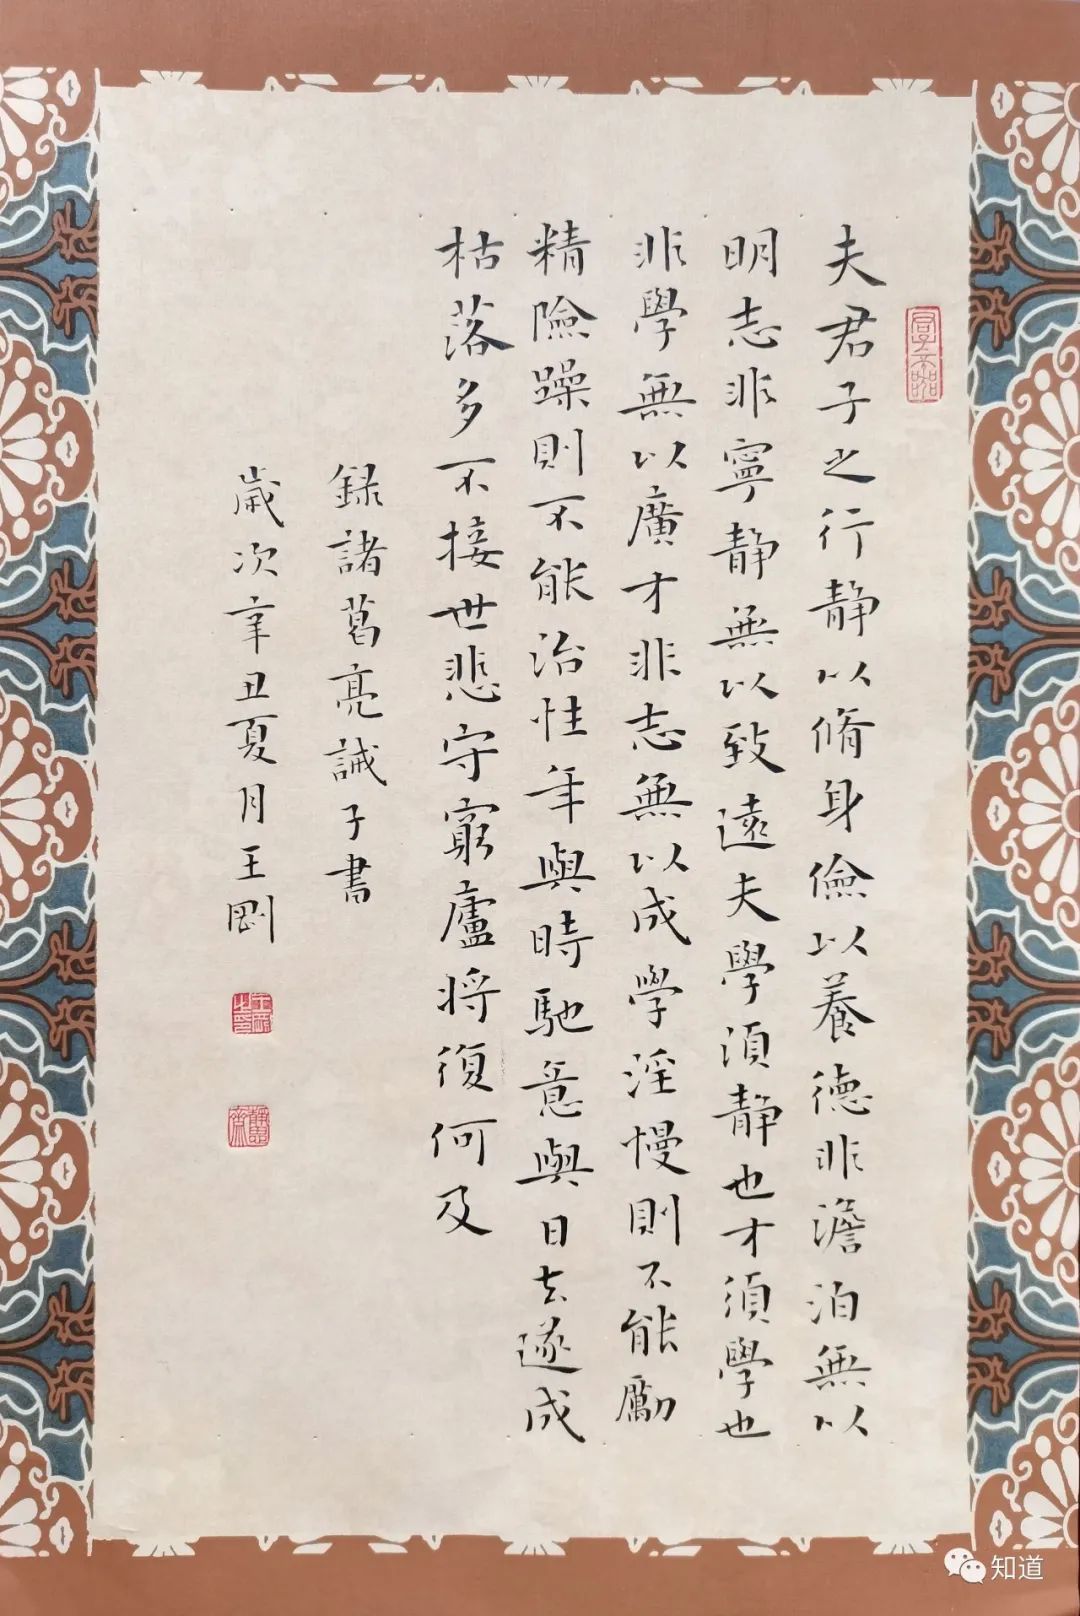 夫君子之行静以脩身儉以養德非澹泊無以
明志非寧静無以致遠夫學須静也才須學也
非學無以廣才非志無以成學淫慢則不能勵
精險躁則不能治性年與時馳意與日去遂成
枯落多不接世悲守窮廬将復何及
録諸葛亮誡子書
歲次辛丑夏月王剛
知道